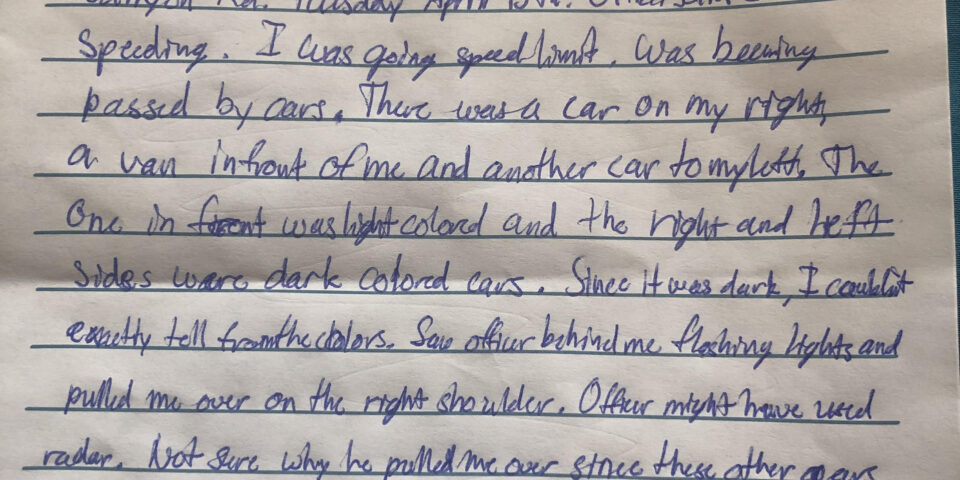 Rd. Tuesday April
Speeding. I was going speed limit. Was beeming
passed by cars. There was a car on my right,
a van infront of me and another car to my left. The
One in front was light colored and the right and left
sides were dark colored cars. Since it was dark, I couldn't
exactly tell from the colors. Saw officer behind me flashing lights and
pulled me over on the right shoulder. Officer might have used
radar. Not sure why he pulled me over since these other cars